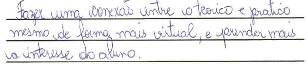 Fazer uma conexão entre o teorico e pratico
mesmo, de forma mais virtual, e prender mais
o interesse do aluno.